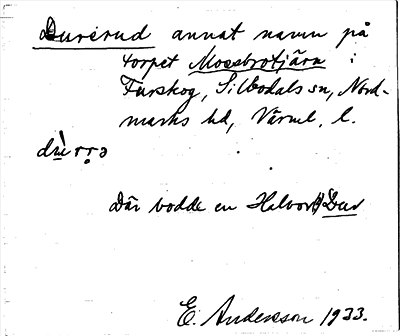 Durerud annat namn på
torpet Mossbrotjärn i
Furskog, Silbodals sn, Nord-
marks hd, Värml. l.
dùrrə
Där bodde en Halvord Dur
E. Andersson 1933.